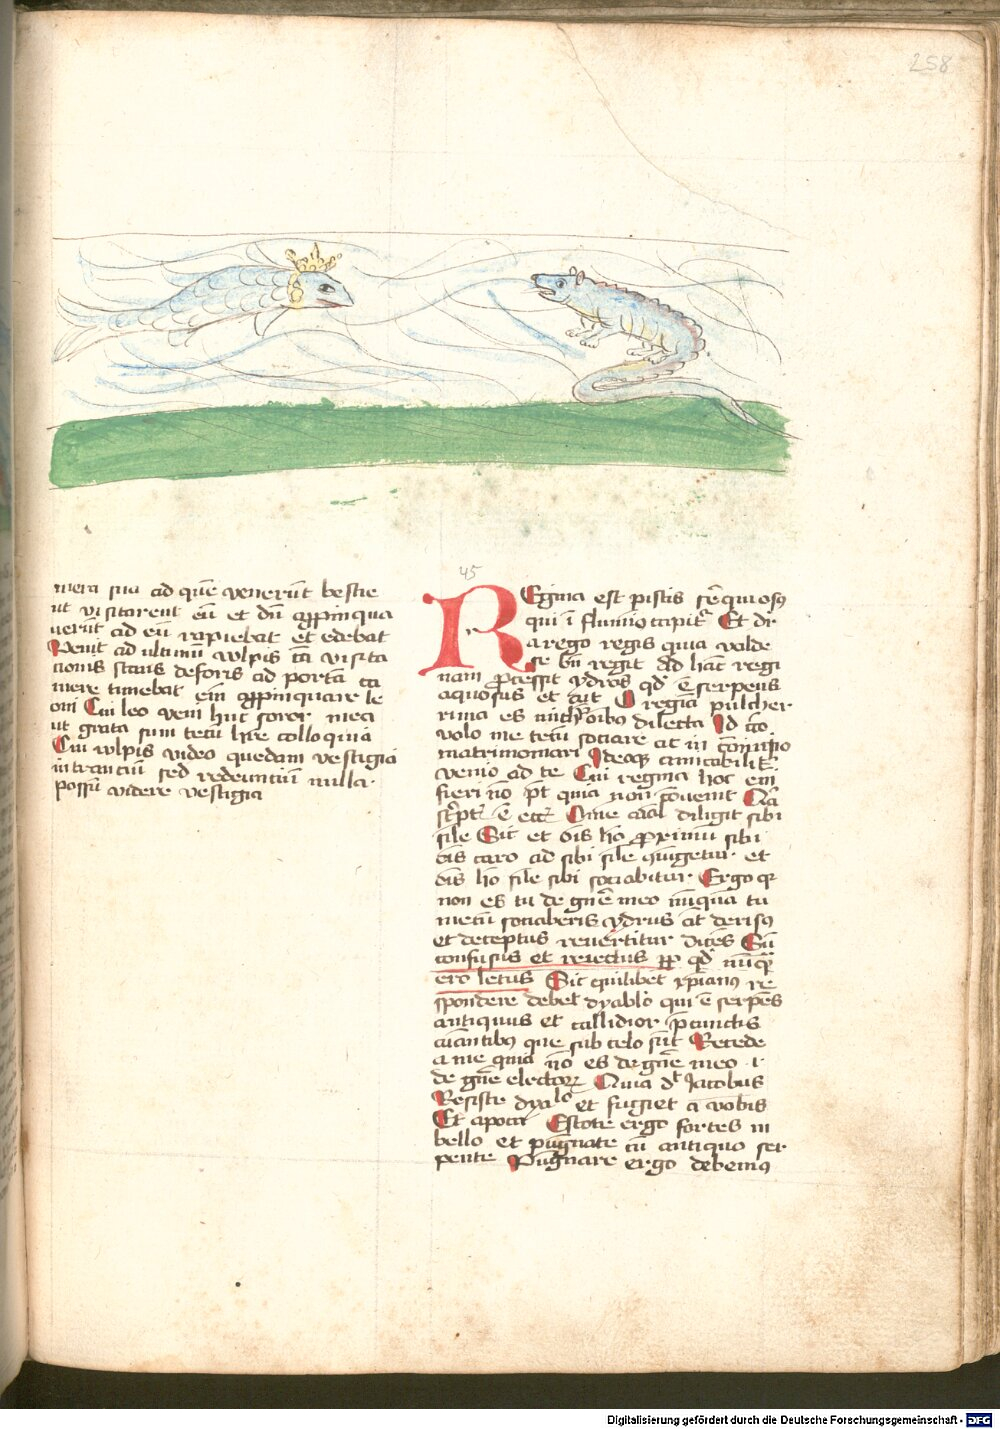 258
mera sua ad quē venerūt bestie
ut visitarent eū et dū appinqua
uerūt ad eū rapiebat et edebat
Venit ad ultimū vulpis cā visita
cionis stans deforis ad portā ca
mere timebat ein appinquare le
oni Cui leo veni huc soror mea
ut grata sum tecū hr̄e colloquiā
Cui vulpis video quedam vestigia
intranciū sed redeunciū nulla
possū videre vestigia
45
REgina est piscis sēquiosꝰ
qui ī flumīo capitr̄ Et dr̄
a rego regis quia valde
se bn̄ regit Ad hāc regi
nam pcessit ydros qd̓ ē serpens
aquosus et dix̄t O regīa pulcher
rima es mīchr̄ oībꝰ dilecta Id c̄co
volo me tecū sociare ac in cōmūio
matrimoniari Ideoqꝫ amicabilitr̄
venio ad te Cui regina hoc em̄
fieri nō pt̄ quia non cōvenit Nā
scʳptʳ ē eccʳ Omne aīal diligit sibi
sīle Sic et oīs hō proximū sibi
oīs caro ad sibi sīle cōiūgetur et
oīs hō sīle sibi sociabitur Ergo qꝫ
non es tu de gn̄e meo nūquā tu
mecū sociaberis ydrus āt derisꝰ
et deceptus revertitur dicēs Sū
confusus et reiectus pp̄ qd̓ nūqꝫ
ero letus Sic quilibet xp̄ianꝰ re
spondere debet dyabl̓o qui ē serpēs
antiquus et callidior p̄ cunctis
aīantibꝰ que sub celo sūt Recede
a me quia nō es de gn̄e meo .i.
de gn̄e electorꝝ Quia dt̓ Jacobus
Resiste dyal̓o et fugiet a vobis
Et apocar̓ Estote ergo fortes in
bello et pugnate cū antiquo ser
pente Pugnare ergo debemꝰ
Digitalisierung gefördert durch die Deutsche Forschungsgemeinschaft - DFG